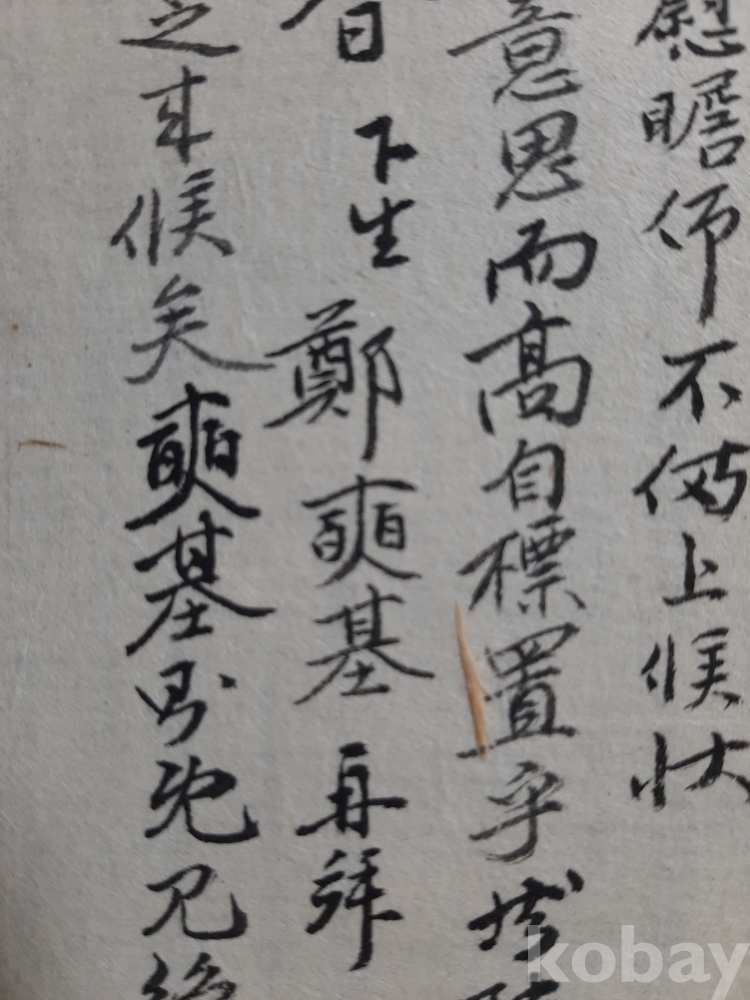 慰瞻仰不備上候狀
意思而高自標置乎
日 下生 鄭奭基 再拜
之來候矣奭基則旣見
kobay